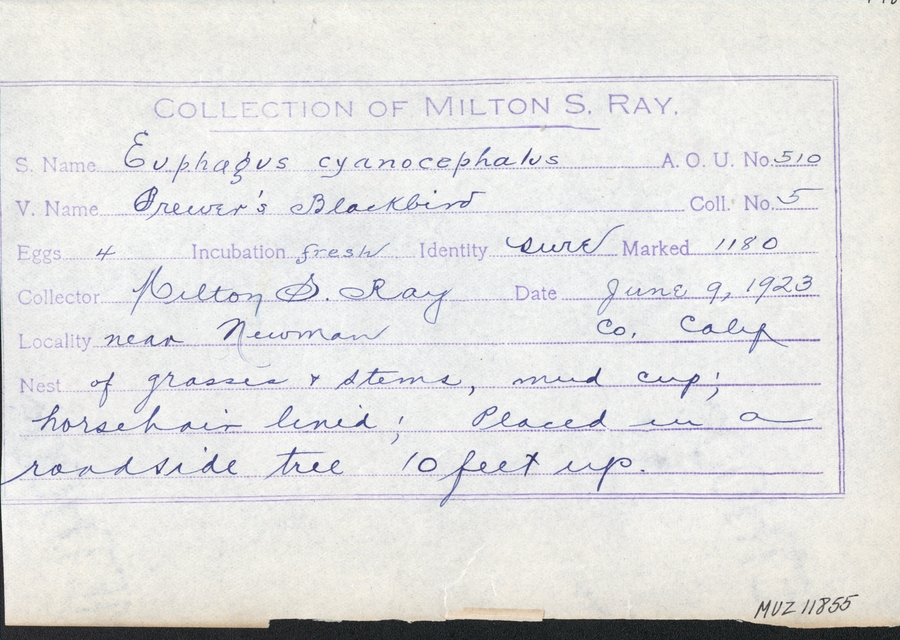 COLLECTION OF MILTON S. RAY.
S. Name Euphagus cyanocephalus A. O. U. No. 510
V. Name Brewer's Blackbird Coll. No. 5
Eggs 4 Incubation fresh Identity sure Marked 1180
Collector Milton S. Ray Date June 9, 1923
Locality near Newman Co. Calif
Nest of grasses & stems, mud cup;
horsehair lined; Placed in a
roadside tree 10 feet up.
MUZ 11855